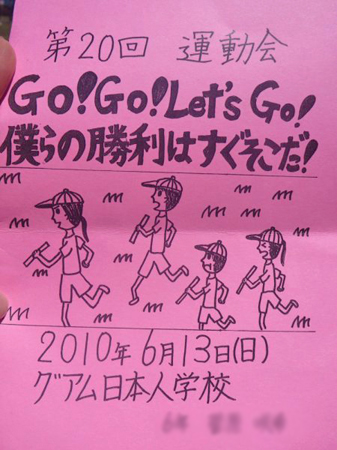 第20回 運動会
Go!Go!Let's Go!
僕らの勝利はすぐそこだ!
2010年6月13日(日)
グアム日本人学校
6年